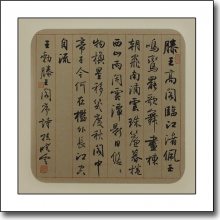 滕王高閣臨江渚佩玉
鳴鸞罷歌舞畫棟
朝飛南浦雲珠簾暮捲
西山雨閒雲潭影日悠悠
物換星移幾度秋閣中
帝子今何在檻外長江空
自流
王勃滕王閣序詩